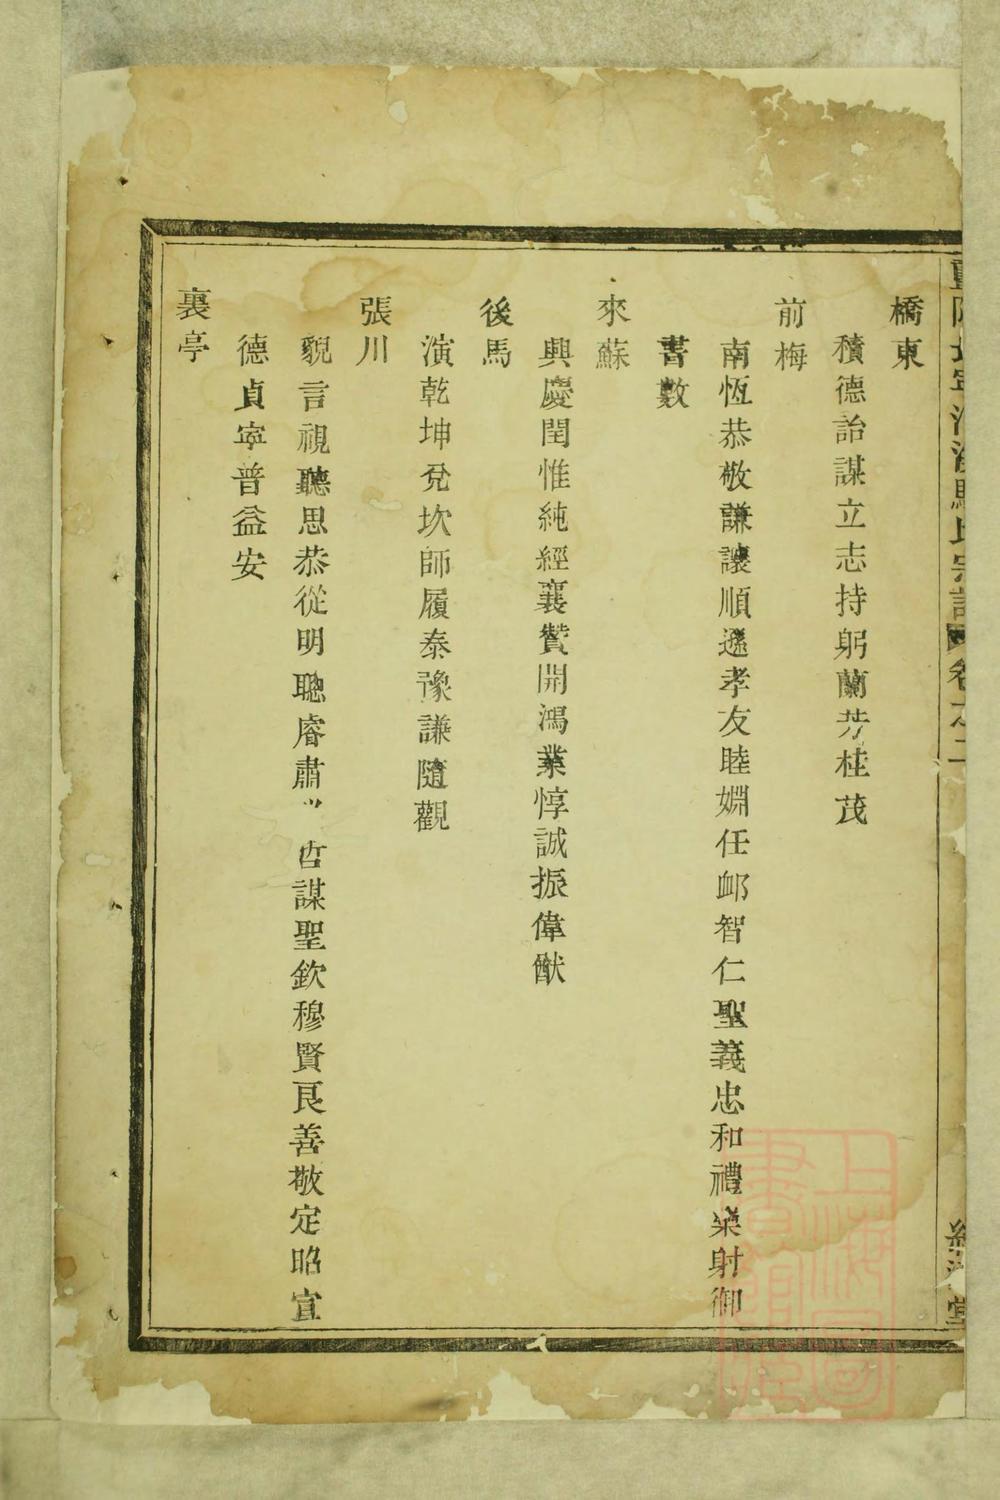 橋東
積德詒謀立志持躬蘭芳桂茂
前梅
南恆恭敬謙讓順遜孝友睦婣任邺智仁聖義忠和禮樂射御
書數
來蘇
興慶閏惟純經襄贊開鴻業惇誠振偉猷
後馬
演乾坤兊坎師履泰豫謙隨觀
張川
貌言視聽思恭從明聰睿肅哲謀聖欽穆賢良善敬定昭宣
德貞寧普益安
裏亭
氏宗譜 卷之二
堂
上海圖書館藏